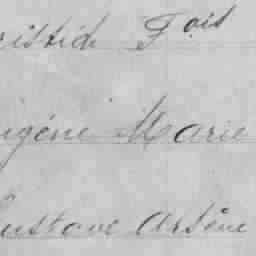 ristid Fois
ugéne Marie
ustave Arséne